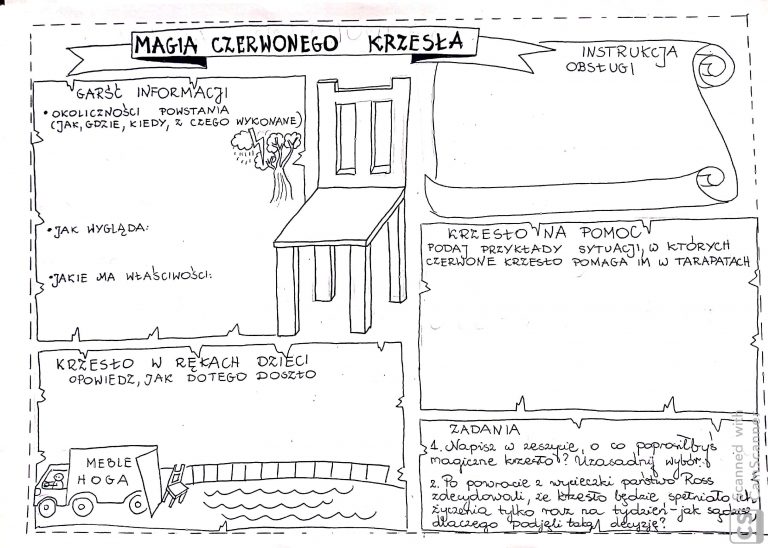 MAGIA CZERWONEGO KRZESŁA
GARŚĆ INFORMACJI
• OKOLICZNOŚCI POWSTANIA
(JAK, GDZIE, KIEDY, Z CZEGO WYKONANE)
• JAK WYGLĄDA:
• JAKIE MA WŁAŚCIWOŚCI:
INSTRUKCJA
OBSŁUGI
KRZESŁO NA POMOC
PODAJ PRZYKŁADY SYTUACJI, W KTÓRYCH
CZERWONE KRZESŁO POMAGA IM W TARAPATACH
KRZESŁO W RĘKACH DZIECI
OPOWIEDZ, JAK DOTEGO DOSZŁO
MEBLE
HOGA
ZADANIA
1. Napisz w zeszycie, o co poprosiłbyś
magiczne krzesło? Uzasadnij wybór.
2. Po powrocie z wycieczki państwo Ross
zdecydowali, że krzesło będzie spełniało ich
życzenia tylko raz na tydzień - jak sądzisz
dlaczego podjęli taką decyzję?
CS Scanned with
CamScanner